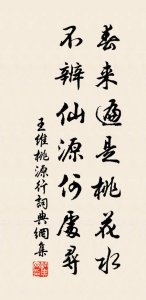 春来遍是桃花水
不辨仙源何处尋
王维桃源行詞典網集